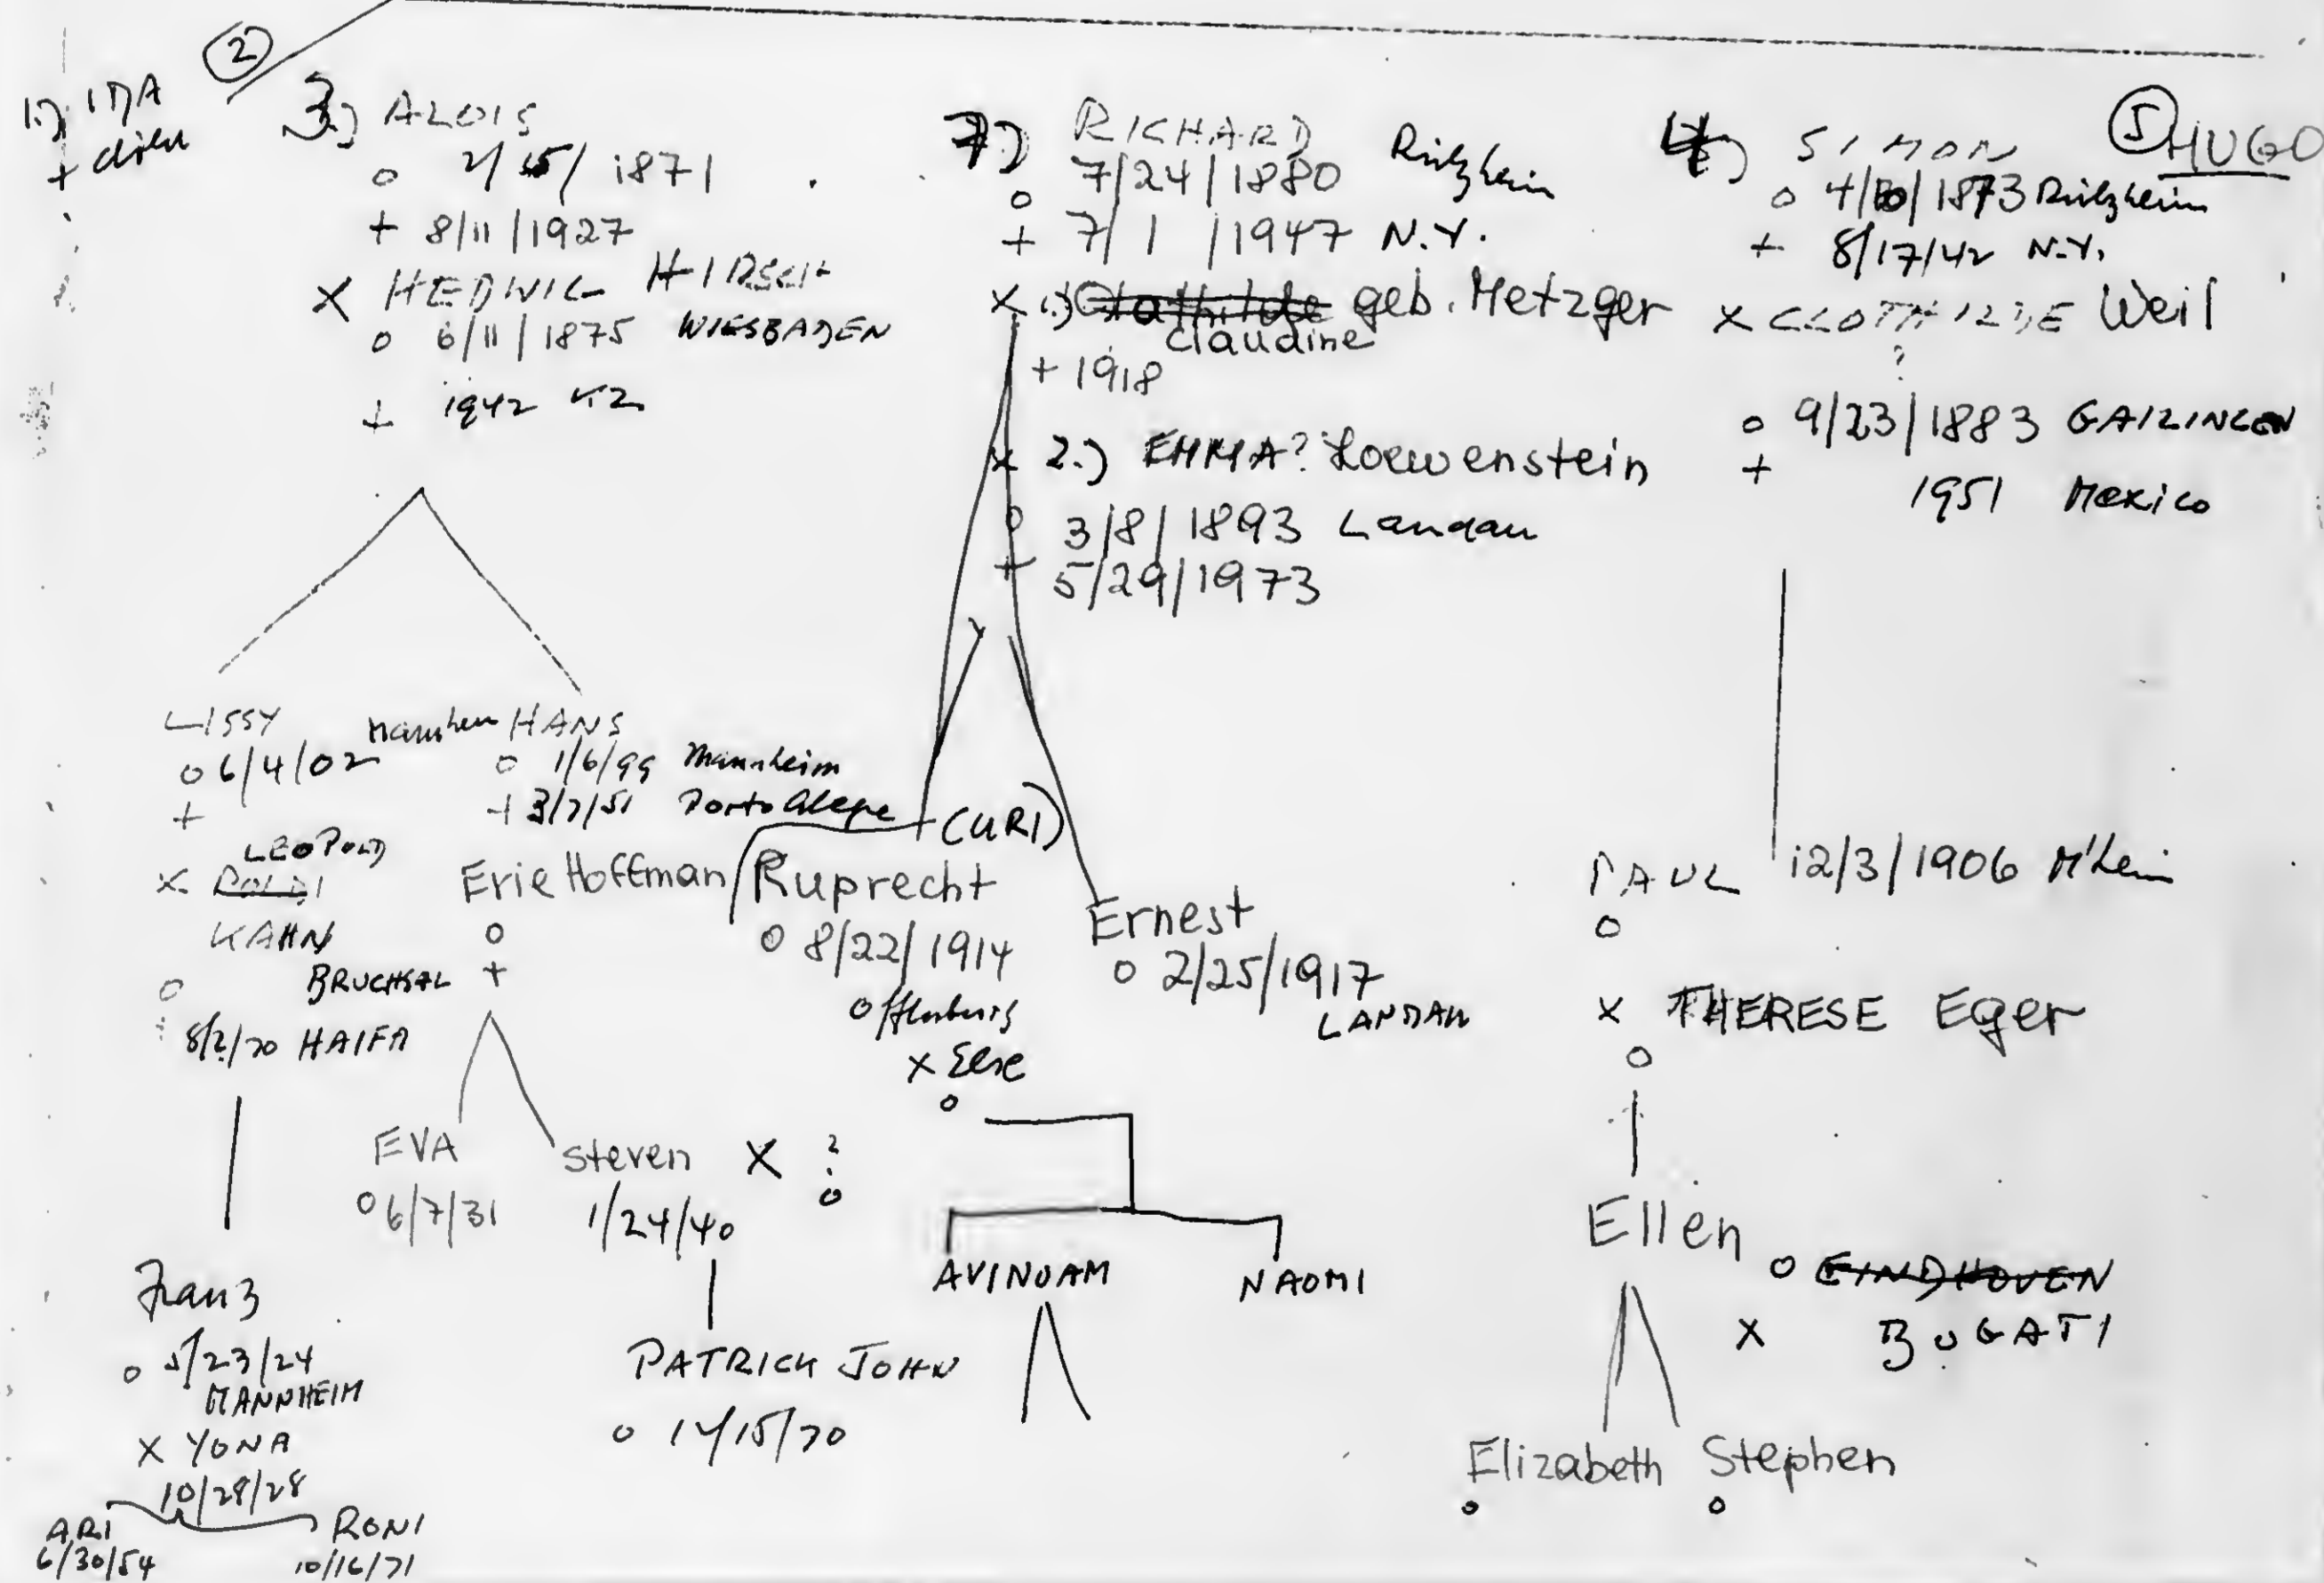 ②
1.) IDA
+
3.) ALOIS
o 2/15/1871
+ 8/11/1927
X HEDWIG HIRSCH
o 6/11/1875 WIESBADEN
+ 1942 KZ
LISSY
o 6/4/02 Mannheim
+
LEOPOLD
X POLDI
KAHN
o BRUCHSAL
8/2/70 HAIFA
Franz
o 5/23/24
MANNHEIM
X YONA
10/28/28
ARI
6/30/54
RONI
10/16/71
HANS
o 1/6/99 Mannheim
+ 3/7/51 Porto Alegre
Erie Hoffman
o
+
EVA
o 6/7/31
Steven X ?
o
1/24/40
PATRICK JOHN
o 11/15/70
7.) RICHARD
o 7/24/1880 Rülzheim
+ 7/1/1947 N.Y.
X 1.) Clothilde geb. Metzger
Claudine
+ 1918
X 2.) EMMA? Loewenstein
o 3/8/1893 Landau
+ 5/29/1973
(URI)
Ruprecht
o 8/22/1914
Offenburg
X Else
o
AVINOAM
NAOMI
Ernest
o 2/25/1917
LANDAU
4.) SIMON
o 4/10/1873 Rülzheim
+ 8/17/42 N.Y.
X CLOTHILDE Weil
?
o 9/23/1883 GAILINGEN
+ 1951 Mexico
PAUL 12/3/1906 M'heim
o
X THERESE Eger
o
Ellen
o EINDHOVEN
X BUGATI
Elizabeth
o
Stephen
o
⑤ HUGO